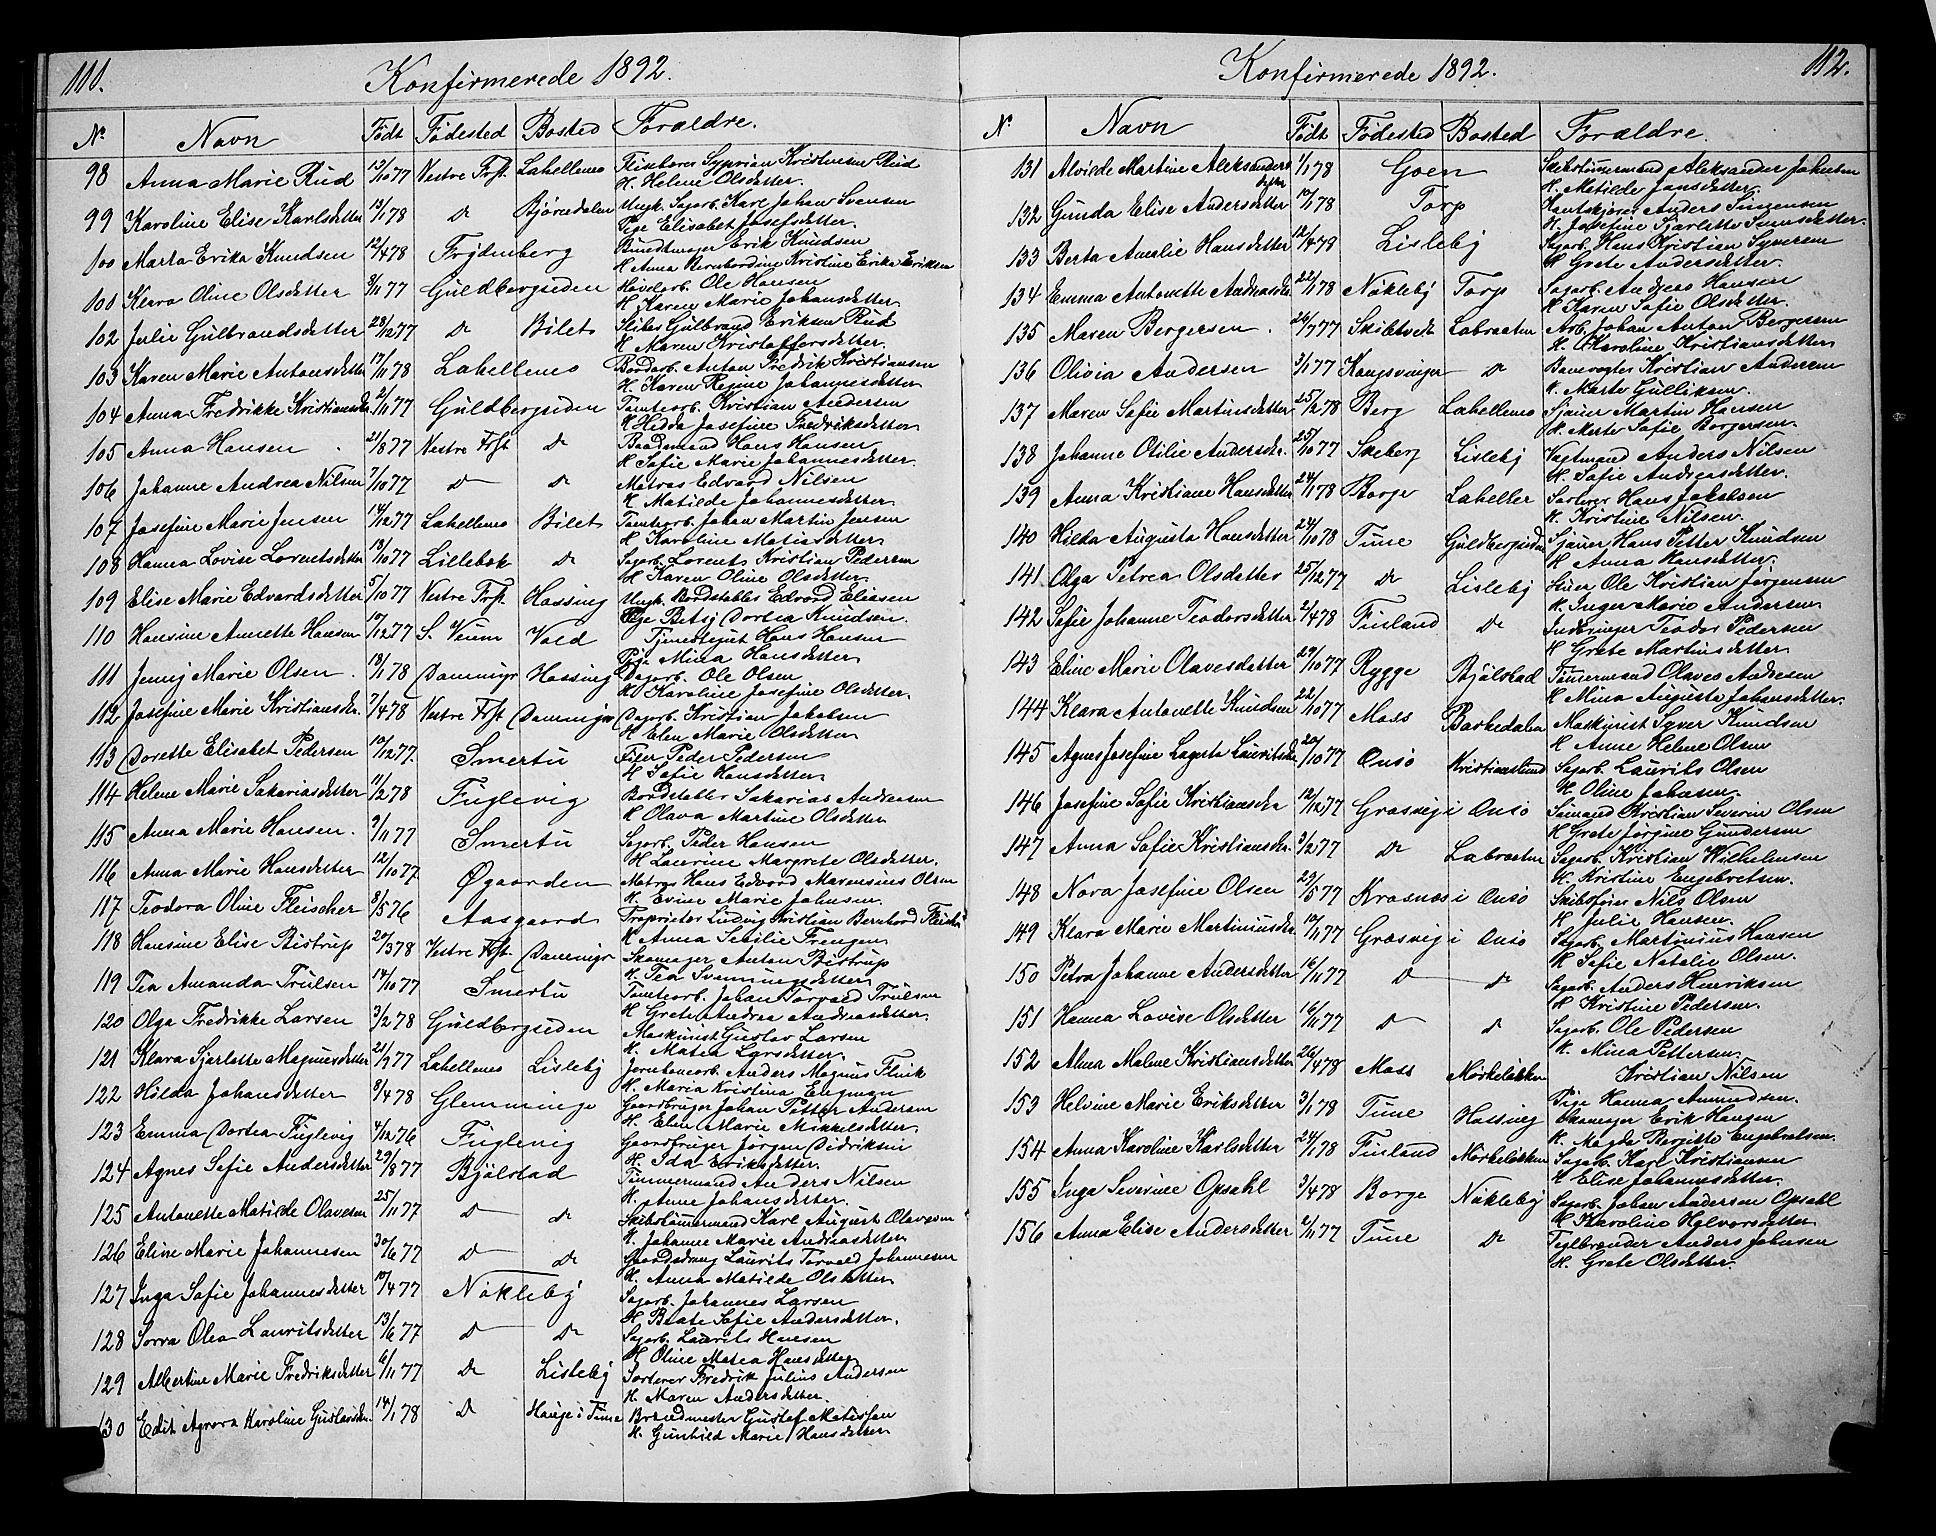 111.
Konfirmerede 1892.
No Navn Født Fødested Bosted Forældre.
98 Anna Marie Rud 13/10 77 Vestre Frst. Labellens Syvrian Kristensen Rud
H. Helene Olsdatter.
99 Karoline Elise Karlsdatter 13/1 78 Do Bjørnedalen Ungk. Sagarb. Karl Johan Svensen
Pige Elisabet Josefsdatter.
100 Marta Erika Knudsen 12/4 78 Frydenberg Bundtmager Erik Knudsen
H. Anna Bernhardine Kristine Erika Eriksen
101 Klara Oline Olsdatter 3/11 77 Guldbergsiden Høvlarb. Ole Hansen
H. Karen Marie Johansdatter
102 Julie Gulbrandsdatter 28/12 77 Do Bilet Gulbrand Eriksen Rud
H. Maren Kristoffersdatter.
103 Karen Marie Antonsdatter 17/11 78 Labellens Bordarb. Anton Fredrik Kristiansen
H. Karen Regine Johannesdatter
104 Anna Fredrikke Kristiansdtr. 2/11 77 Guldbergsiden Tomtearb. Kristian Andersen
H. Hilda Josefine Fredriksdatter
105 Anna Hansen 21/8 77 Vestre Frst Do Baadsmand Hans Hansen
H. Sofie Marie Johannesdatter.
106 Johanne Andrea Nilsen 7/10 77 Do Do Matros Edvard Nilsen
H. Matilde Johannesdatter.
107 Josefine Marie Jensen 14/12 77 Labellens Bilet Tomtearb. Johan Martin Jensen
H. Karoline Matiasdatter
108 Hanna Lovise Lorentsdatter 13/10 77 Lillebæk Do Sagarb. Lorents Kristian Pedersen
H. Karen Oline Olsdatter.
109 Elise Marie Edvardsdatter 5/10 77 Vestre Frst. Hassing Ungk. Bordstabler Edvard Eliasen
Pige Betsy Dortea Knudsen.
110 Hansine Annette Hansen 17/12 77 S. Veum Vold Hans Hansen
Pige Mina Hansdatter
111 Jenny Marie Olsen 18/1 78 Dammyr Hassing Dagarb. Ole Olsen
H. Karoline Josefine Olsdatter.
112 Josefine Marie Kristiansdr. 7/4 78 Vestre Frst Dammyr Dagarb. Kristian Jakobsen
H. Elen Marie Olsdatter
113 Dorette Elisabet Pedersen 12/12 77 Smertu Peder Pedersen
H. Sofie Hansdatter
114 Helene Marie Sakariasdatter 11/2 78 Fuglevig Bordstabler Sakarias Andreasen
H. Olava Martine Olsdatter
115 Anna Marie Hansen. 9/11 77 Smertu Sagarb. Peder Hansen
H. Laurine Margrete Olsdatter.
116 Anna Marie Hansdatter 12/10 77 Øgaarden Matros Hans Edvard Marensius Olsen
H. Evine Marie Johnsen.
117 Teodora Oline Fleischer 8/5 76 Aasgaard Proprietær Ludvig Kristian Bernhard Fleischer
H. Anna Sesilie Frengen
118 Hansine Elise Bistrup 20/3 78 Vestre Frst. Dammyr Skomager Anton Bistrup
H. Tea Svenningsdatter
119 Tea Amanda Trulsen 14/10 77 Smertu Tomtearb. Johan Torvald Trulsen
H. Grete Andrea Andreasdatter.
120 Olga Fredrikke Larsen 3/2 78 Guldbergsiden Maskinist Gustav Larsen
H. Matea Larsdatter.
121 Klara Sjarlotte Magnusdatter 21/7 77 Labellens Lisleby Jernbanearb. Anders Magnus Flink
H. Maria Kristina Engman
122 Hilda Johansdatter 8/4 78 Glemminge Gaardbruger Johan Petter Andersen
H. Elen Marie Mikkelsdatter.
123 Emma Dortea Fuglevig 4/12 76 Fuglevig Gaardbruger Jørgen Didriksen
H. Ida Eriksdatter.
124 Agnes Sofie Andersdatter 29/8 77 Bjølstad Tømmermand Anders Nilsen
H. Anne Johansdatter.
125 Antonette Matilde Olavesen 25/11 77 Do Do Skibstømmermand Karl August Olavesen
H. Johanne Marie Andreasdatter
126 Eline Marie Johannesen 30/6 77 Do Do Gaardsdreng Laurits Torvald Johannesen
H. Anna Matilde Olsdatter
127 Inga Sofie Johannesdatter 17/4 77 Nøkleby Sagarb. Johannes Larsen
H. Beate Sofie Andersdatter.
128 Sorra Olea Lauritsdatter 13/6 77 Do Do Sagarb. Laurits Hansen
H. Oline Matea Hansdatter
129 Albertine Marie Fredriksdatter 6/11 77 Do Lisleby Sorterer Fredrik Julius Andersen
H. Maren Andersdatter.
130 Edit Karoline Gustavsdtr. 14/1 78 Do Hauge i Tune Brandmester Gustaf Matissen
H. Gunhild Marie Hansdatter
112.
Konfirmerede 1892.
No Navn Født Fødested Bosted Forældre.
131 Alvilde Martine Aleksandersdatter 1/1 78 Goen Skibstømmermand Aleksander Johnsen
H. Matilde Jansdatter
132 Gunda Elise Andersdatter 17/1 78 Torp Anders Simensen
H. Josefine Sjarlotte Simensdatter.
133 Berta Amalie Hansdatter 12/4 78 Lisleby Sagarb. Hans Kristian Syversen
H. Grete Andersdatter.
134 Emma Antonette Andreasdr. 22/1 78 Nøkleby Torp Sagarb. Andreas Hansen
H. Karen Sofie Olsdatter.
135 Maren Bergersen. 26/7 77 Skibtvedt Labraaten Arb. Johan Anton Bergersen
H. Karoline Kristiansdatter
136 Olivia Andersen 3/1 77 Kongsvinger Do Banevogter Kristian Andersen
H. Marte Gulliksen.
137 Maren Sofie Martinsdatter 25/2 78 Berg Labellens Sjauer Martin Hansen
H. Merte Sofie Borgersen.
138 Johanne Otilie Andersdr. 25/10 77 Skeberg Lisleby Vagtmand Anders Nilsen
H. Sofie Andreasdatter.
139 Anna Kristiane Hansdatter 24/1 78 Borge Labeller Sorterer Hans Jakobsen
H. Kristine Nilsen.
140 Hilda Augusta Hansdatter 24/10 78 Tune Guldbergsiden Sjauer Hans Petter Knudsen
H. Anna Hansdatter.
141 Olga Petrea Olsdatter 25/12 77 Do Lisleby Ole Kristian Jørgensen
H. Inger Marie Andersen
142 Sofie Johanne Teodorsdatter 2/4 78 Finland Do Indbringer Teodor Pedersen
H. Grete Martinsdatter.
143 Eline Marie Olavesdatter 29/10 77 Rygge Bjølstad Tømmermand Olaves Andersen
H. Mina Augusta Johansdatter.
144 Klara Antonette Knudsen 22/10 77 Moss Barkedalen Maskinist Syver Knudsen
H. Anne Helene Olsen
145 Agnes Josefine Lagerta Lauritsdr. 20/10 77 Onsø Kristianslund Sagarb. Laurits Olsen
H. Oline Johnsen.
146 Josefine Sofie Kristiansdr 12/12 77 Græsvig i Onsø Sømand Kristian Severin Olsen
H. Grete Jørgine Gundersen
147 Anna Sofie Kristiansdr. 3/2 77 Do Labraaten Sagarb. Kristian Wilhelmsen
H. Kristine Engebretsen.
148 Nora Josefine Olsen 29/5 77 Kraanæs i Onsø Skibsfører Nils Olsen
H. Julie Hansen.
149 Klara Marie Martiniusdr. 10/11 77 Græsvig i Onsø Sagarb. Martinius Hansen
H. Sofie Natalie Olsen.
150 Petra Johanne Andersdatter 16/11 77 Do Do Sagarb. Anders Henriksen
H. Kristine Pedersen.
151 Hanna Lovise Olsdatter 16/11 77 Do Do Sagarb. Ole Pedersen
H. Mina Pettersen.
152 Alma Malene Kristiansdatter 26/4 78 Moss Mørkeløkken Kristian Nilsen
Pige Hanna Amundsen.
153 Helvine Marie Eriksdatter 3/1 78 Tune Hassing Skomager Erik Hansen
H. Magda Bergitte Engebretsen.
154 Anna Karoline Karlsdatter 24/1 78 Finland Mørkeløkken Sagarb. Karl Kristiansen
H. Elise Johannesdatter.
155 Inga Severine Opsahl 3/4 78 Borge Nøkleby Sagarb. Johan Anderson Opsahl
H. Karoline Halvorsdatter
156 Anna Elise Andersdatter 2/11 77 Tune Do Teglbrænder Anders Johnsen
H. Grete Olsdatter.